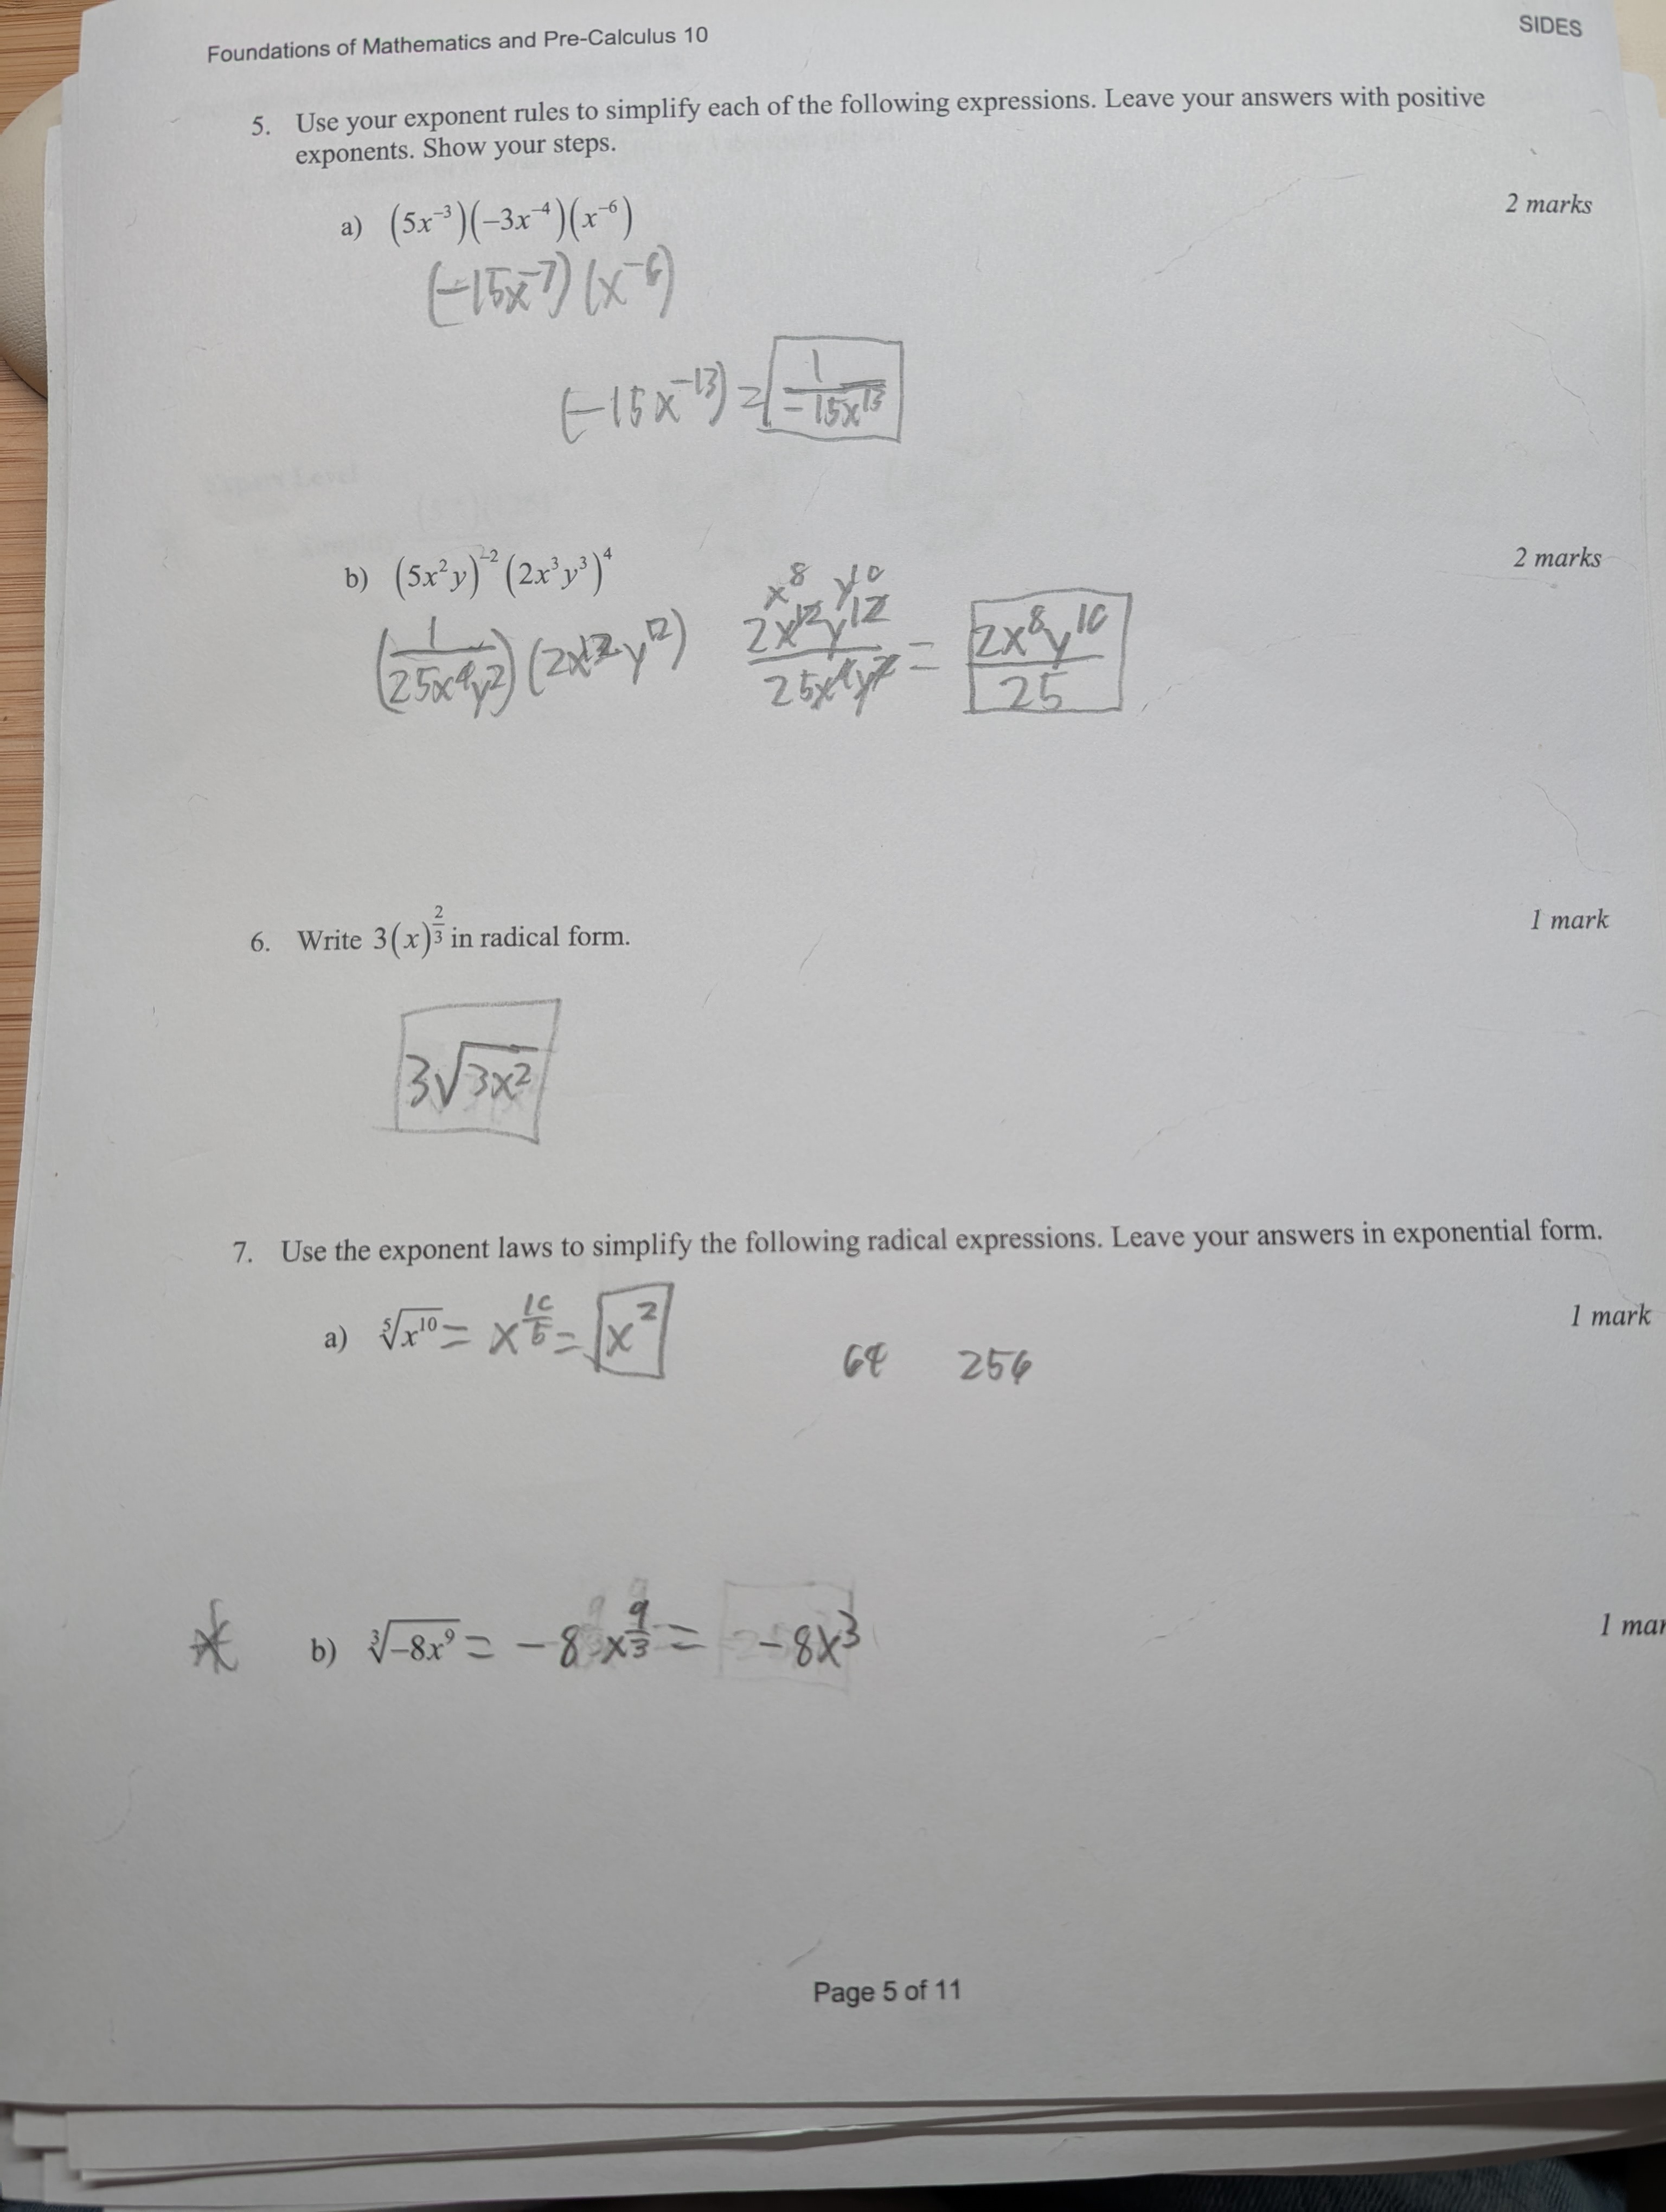 Foundations of Mathematics and Pre-Calculus 10
SIDES
5. Use your exponent rules to simplify each of the following expressions. Leave your answers with positive
exponents. Show your steps.
a) (5x⁻³)(−3x⁻⁴)(x⁻⁶)
2 marks
(−15x⁻⁷)(x⁻⁶)
(−15x⁻¹³) = 1/−15x¹³
b) (5x²y)⁻²(2x³y³)⁴
2 marks
x⁸ y¹⁰
(1/25x⁴y²)(2x¹²y¹²) 2x¹²y¹²/25x⁴y² = 2x⁸y¹⁰/25
6. Write 3(x)^(2/3) in radical form.
1 mark
3√3x²
7. Use the exponent laws to simplify the following radical expressions. Leave your answers in exponential form.
a) ⁵√x¹⁰ = x^(10/5) = x²
1 mark
64 256
b) ³√−8x⁹ = −8x^(9/3) = −8x³
1 mar
Page 5 of 11